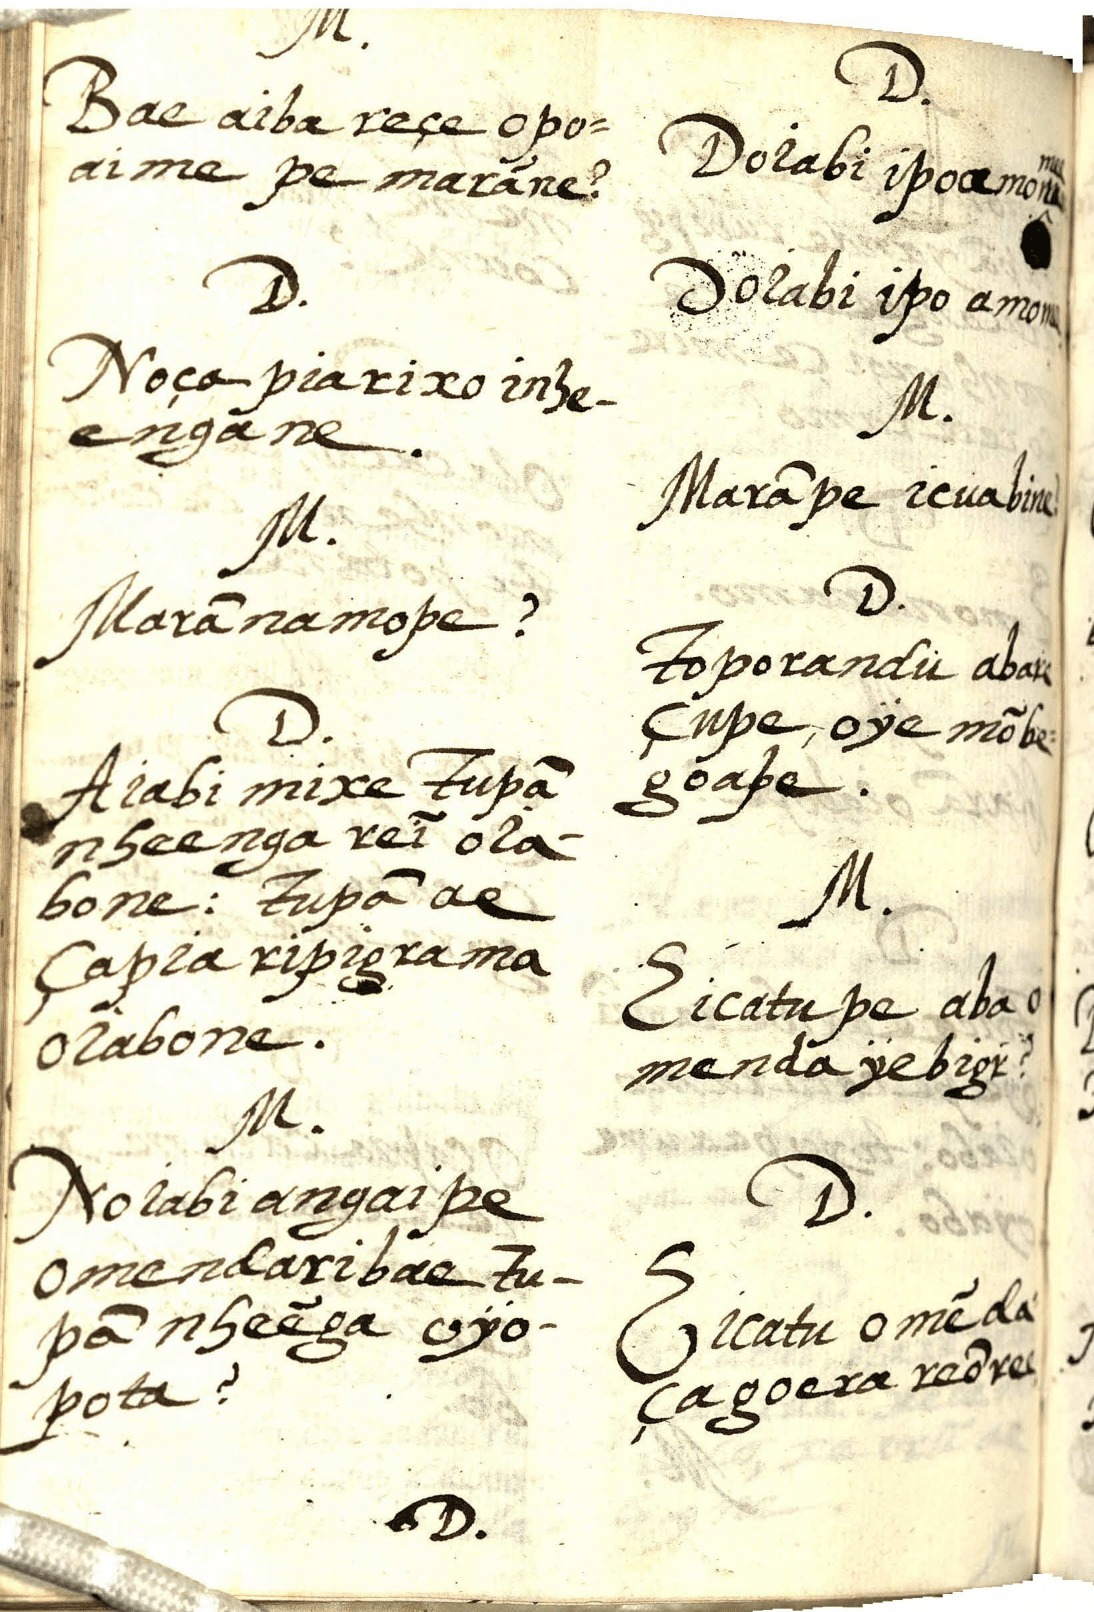 M.
Bae aiba reçe opo=
aime pe marãne?
D.
Noça piarixo inhe-
engãne.
M.
Marãnamope?
D.
Aiabi mixe Tupã
nheenga reĩ oia-
bone: Tupã ae
Çapia ripigrama
oiabone.
M.
Noiabi angaipe
omendaribae Tu-
pã nheẽga oÿo-
pota?
D.
D.
Doiabi ipo
Doiabi ipo
M.
Marãpe icuabine?
D.
Toporandu
Çupe, oÿe mõbe=
goape.
M.
Eicatupe aba o
menda ÿebigr?
D.
Eicatu omẽda
çagoera